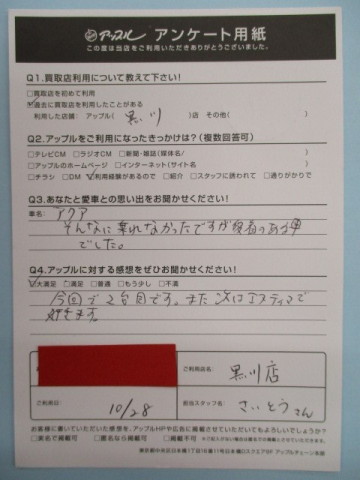 アップル アンケート用紙
この度は当店をご利用いただきありがとうございました。
Q1.買取店利用について教えて下さい!
□買取店を初めて利用
☑過去に買取店を利用したことがある
利用した店舗: アップル( 黒川 )店 その他( )
Q2.アップルをご利用になったきっかけは?(複数回答可)
□テレビCM □ラジオCM □新聞・雑誌(媒体名/ )
□アップルのホームページ □インターネット(サイト名 )
□チラシ □DM ☑利用経験があるので □紹介 □スタッフに誘われて □通りがかりで
Q3.あなたと愛車との思い出をお聞かせください!
車名: アクア
そんなに乗れなかったですが愛着のある車
でした。
Q4.アップルに対する感想をぜひお聞かせください!
☑大満足 □満足 □普通 □もう少し □不満
今回で2台目です。また次はエスティマで
来ます。
ご利用店名: 黒川店
ご利用日: 10/28
担当スタッフ名: さいとうさん
お客様に書いていただいた感想を、アップルHPや広告に掲載させていただいてもよろしいでしょうか?
□実名で掲載可 □匿名なら掲載可 □掲載不可